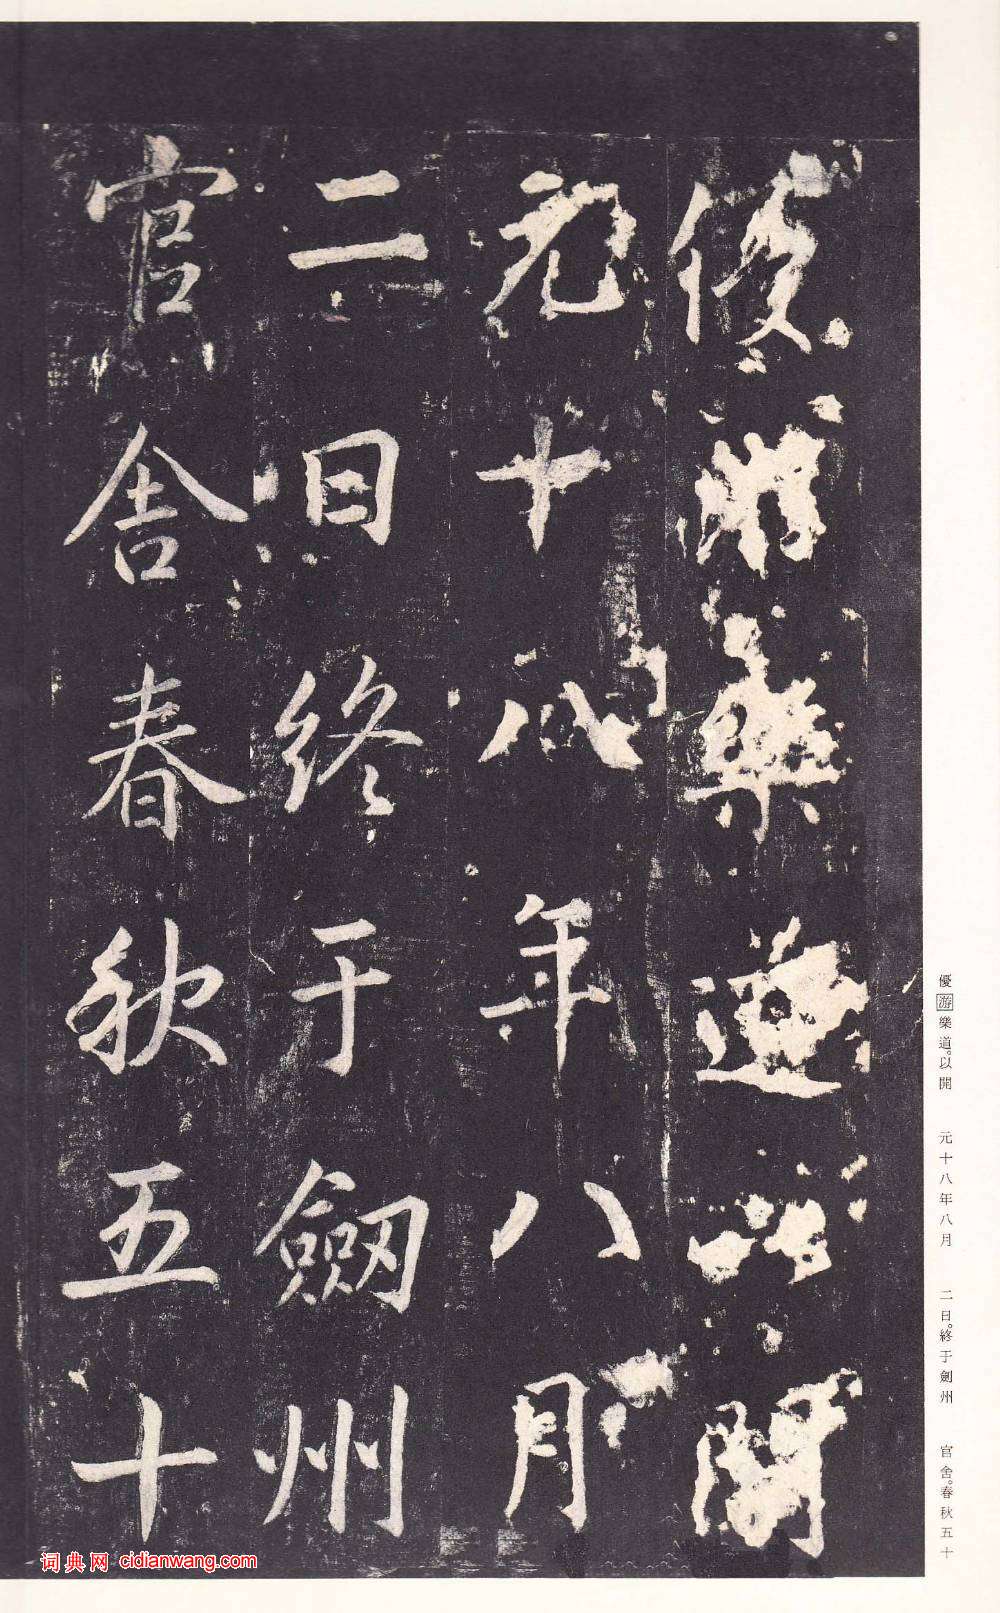 優游樂道以開
元十八年八月
二日終于劍州
官舍春秋五十
優游樂道。以開 元十八年八月 二日。終于劍州 官舍。春秋五十
词典网 cidianwang.com